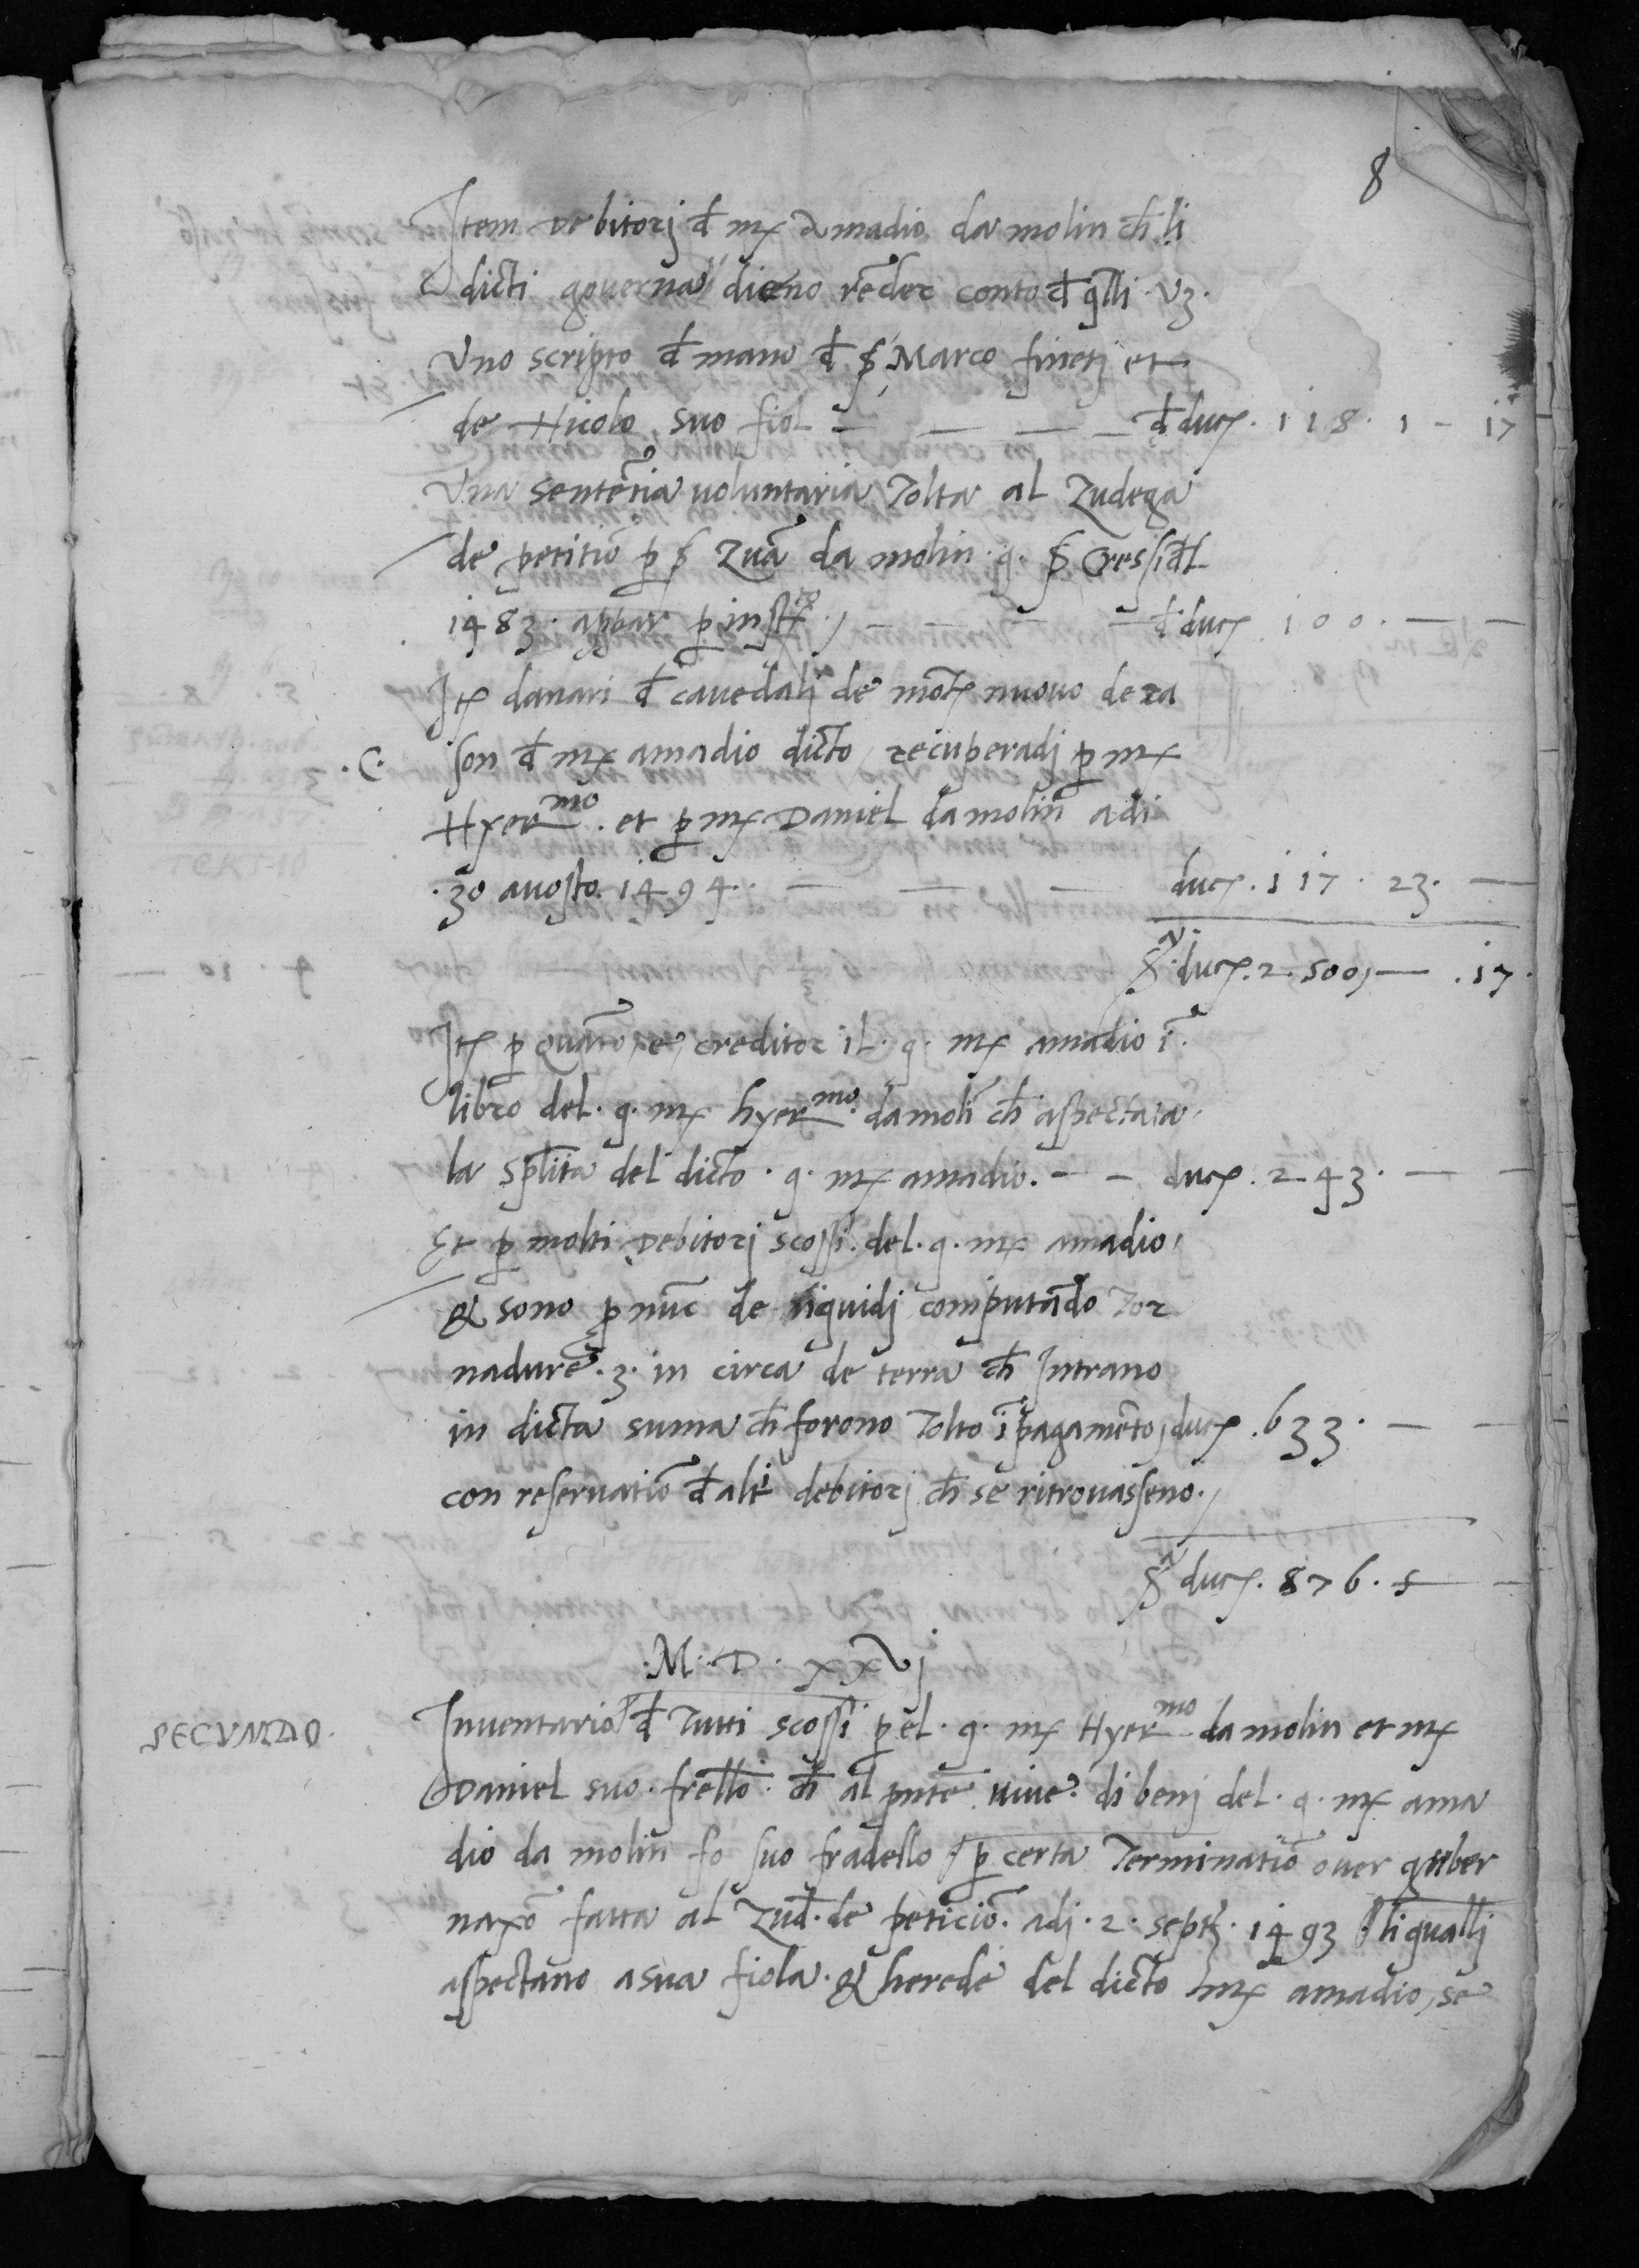 8
Item debitorj đ mʒ Amadio da molin ch̄ li
dicti governa' dieno rēder conto đ q̄lli .vʒ.
Uno scripto đ mano đ ş Marco finetj et
de Nicolo suo fiol — — — — đ ducʒ. 118. 1 - 17
Una sentētia voluntaria Tolta al Zudega
de petitiō p̱ ş Zuā da molin .q. ş
1483. appar p̱ — — — — đ ducʒ 100. — —
Itʒ danari đ cavedalj de mōtʒ nuovo de ra
.C. son đ mʒ amadio dicto, recuperadj p̱ mʒ
Hyerᵐᵒ. et p̱ mʒ Daniel da molin adi
.30 avosto. 1494. — — — ducʒ. 117. 23. —
Sᵃ. ducʒ. 2.500, — .17.
Itʒ p̱ Quāto, e, creditor il. q. mʒ amadio ī.
libro del. q. mʒ hyerᵐᵒ. da molī ch̄ aspecta, a,
la del dicto. q. mʒ amadio. - - ducʒ. 243. — —
Et p̱ molti debitorj scossi. del. q. mʒ amadio,
& sono p̱ nūc de liquidj computādo Tor
nadure. 3. in circa de terra ch̄ Intrano
in dicta suma ch̄ forono Tolto ī pagamēto, ducʒ. 633. — —
con reservatiō đ altʳⁱ debitorj ch̄ se ritrovasseno.,
Sᵃ ducʒ. 876. — —
.M. D. XXVj
SECUNDO. Inventario đ Tutti scossi p̱ el. q. mʒ Hyerᵐᵒ da molin et mʒ
Daniel suo. frēllo. ch̄ al p̄nte vive. di benj del. q. mʒ ama
dio da molin fo suo fradello p̱ certa Terminatiō over guber
naxō fatta al Zuđ. de peticiō. adj. 2. septʒ. 1493 li qualli
aspectano a sua fiola. & herede del dicto mʒ amadio, se